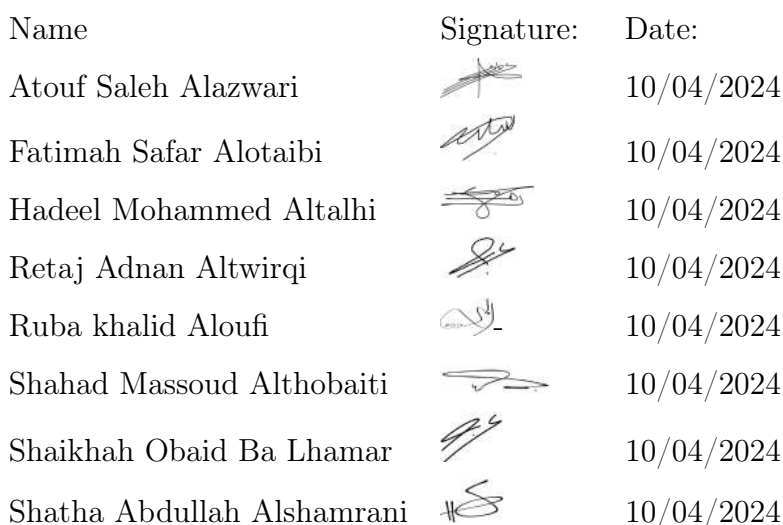 Name Signature: Date:
Atouf Saleh Alazwari 10/04/2024
Fatimah Safar Alotaibi 10/04/2024
Hadeel Mohammed Altalhi 10/04/2024
Retaj Adnan Altwirqi 10/04/2024
Ruba khalid Aloufi 10/04/2024
Shahad Massoud Althobaiti 10/04/2024
Shaikhah Obaid Ba Lhamar 10/04/2024
Shatha Abdullah Alshamrani 10/04/2024